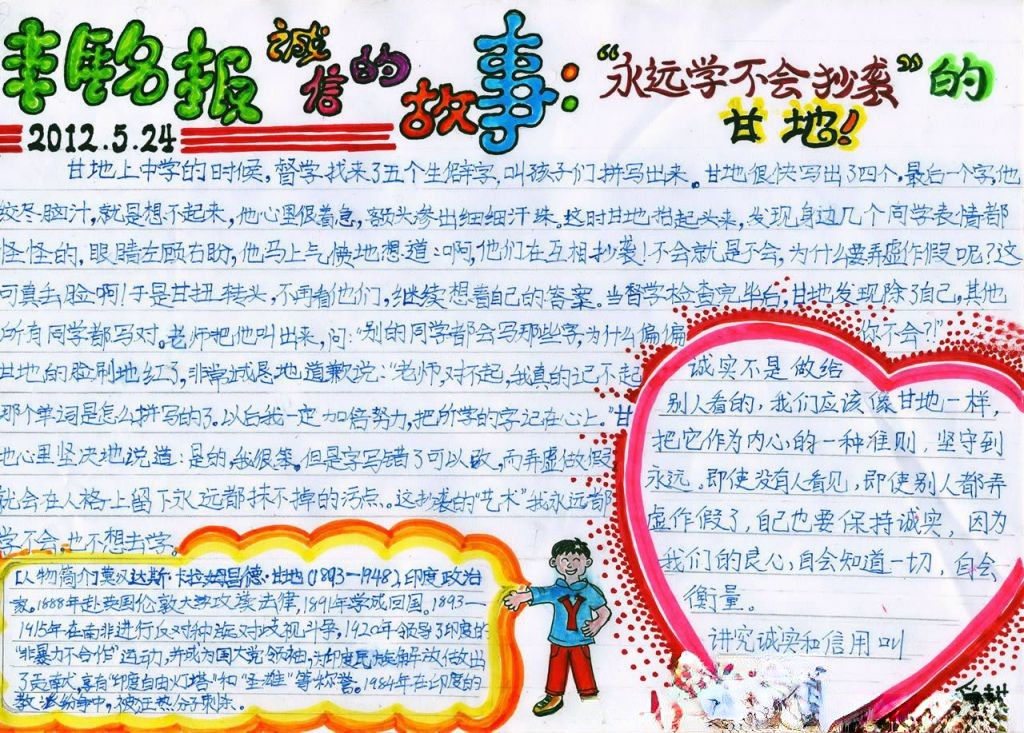 韩铭报 诚信的故事：“永远学不会抄袭”的
甘地！
2012.5.24
甘地上中学的时候，督学找来了五个生僻字，叫孩子们拼写出来。甘地很快写出了四个，最后一个字，他
绞尽脑汁，就是想不起来，他心里很着急，额头渗出细细汗珠。这时甘地抬起头来，发现身边几个同学表情都
怪怪的，眼睛左顾右盼，他马上气愤地想道：啊，他们在互相抄袭！不会就是不会，为什么要弄虚作假呢？这
可真丢脸啊！于是甘扭转头，不再看他们，继续想着自己的答案。当督学检查完毕后，甘地发现除了自己，其他
所有同学都写对。老师把他叫出来，问：“别的同学都会写那些字，为什么偏偏 你不会？”
甘地的脸刷地红了，非常诚恳地道歉说：“老师，对不起，我真的记不起
那个单词是怎么拼写的了。以后我一定加倍努力，把所学的字记在心上。”甘
地心里坚决地说道：是的，我很笨。但是字写错了可以改，而弄虚做假
就会在人格上留下永远都抹不掉的污点。这抄袭的“艺术”我永远都
学不会，也不想去学。
诚实不是做给
别人看的，我们应该像甘地一样，
把它作为内心的一种准则，坚守到
永远。即使没有人看见，即使别人都弄
虚作假了，自己也要保持诚实，因为
我们的良心，自会知道一切，自会
衡量。
讲究诚实和信用叫
[人物简介]莫汉达斯·卡拉姆昌德·甘地(1893—1948)，印度政治
家。1888年赴英国伦敦大学攻读法律，1891年学成回国。1893—
1915年在南非进行反对种族歧视斗争，1920年领导了印度的
“非暴力不合作”运动，并成为国大党领袖，为印度民族解放做出
了贡献，享有“印度自由灯塔”和“圣雄”等称誉。1984年在印度的
教派纷争中，被狂热分子刺杀。